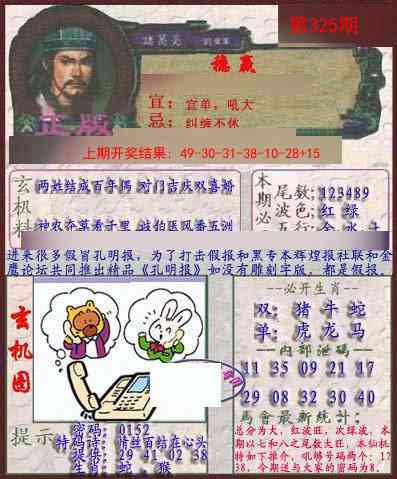 第325期
諸葛亮
稳赢
宜：宜单，吼大
忌：纠缠不休
正版
上期开奖结果：49-30-31-38-10-28+15
玄机料
两姓结成百年偶 对门吉庆双喜婚
本期必
尾数:123489
波色:红 绿
进来很多假冒孔明报，为了打击假报和黑专本辉煌报社联和金
鹰论坛共同推出精品《孔明报》如没有雕刻字版，都是假报。
玄机图
必开生肖
双：猪 牛 蛇
单：虎 龙 马
内部泄码
11 35 09 21 17
29 08 32 30 40
馬會最新統计：
总分为大，红波旺，次绿波，本
期以七和八之尾数大旺，本仙机
特如下推介，吼够号码两个：17
38，今期送与大家的密码为8．
提示
密码：0152
特码诗：情丝百结在心头
提供：29 41 02 38
生肖：蛇、猴